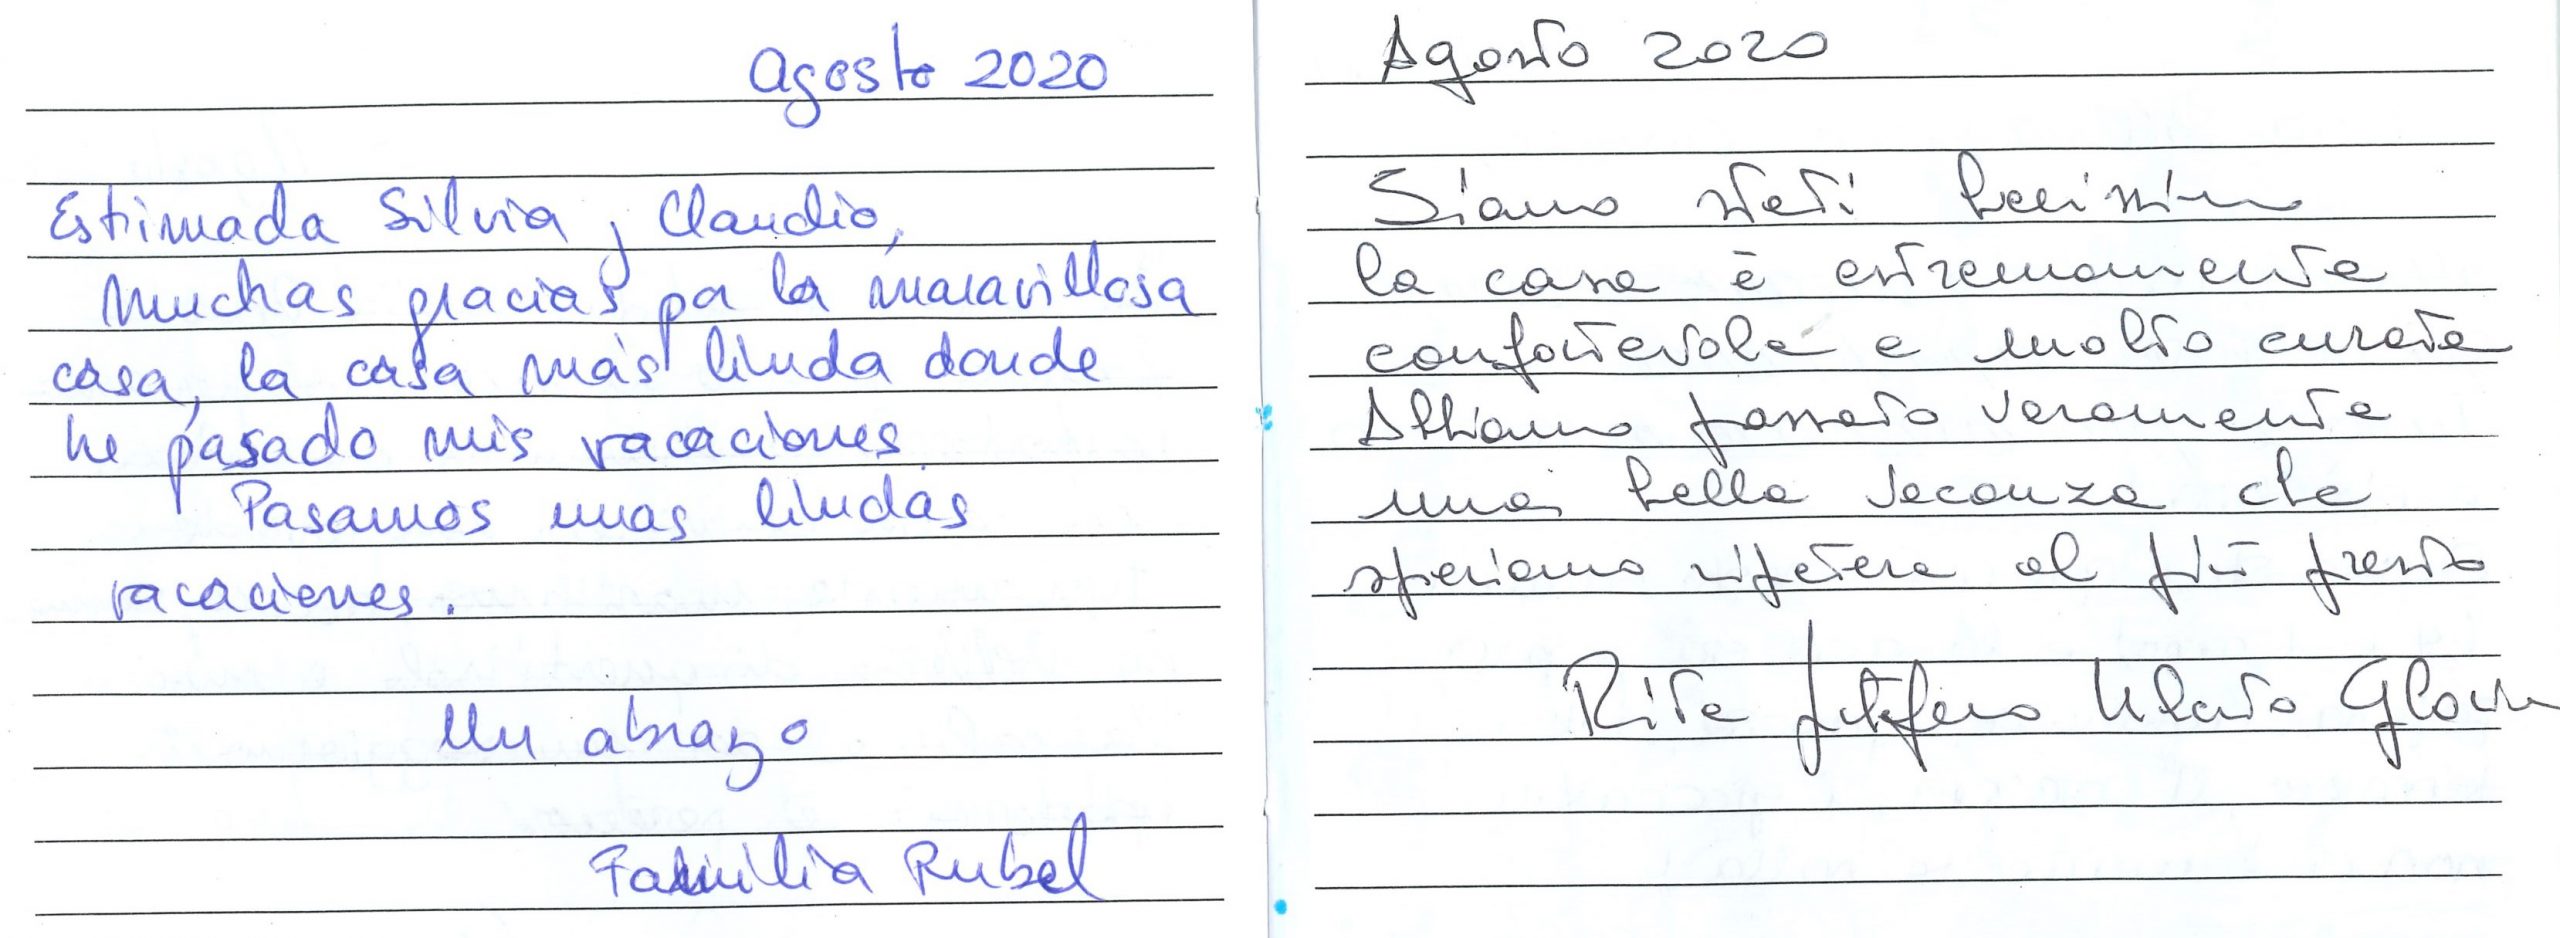 Agosto 2020
Estimada Silvia y Claudio,
Muchas gracias por la maravillosa
casa, la casa más linda donde
he pasado mis vacaciones.
Pasamos unas lindas
vacaciones.
Un abrazo
Familia Rubel
Agosto 2020
Siamo stati benissimo
la casa è estremamente
confortevole e molto curata
Abbiamo passato veramente
una bella vacanza che
speriamo ripetere al più presto
Rita